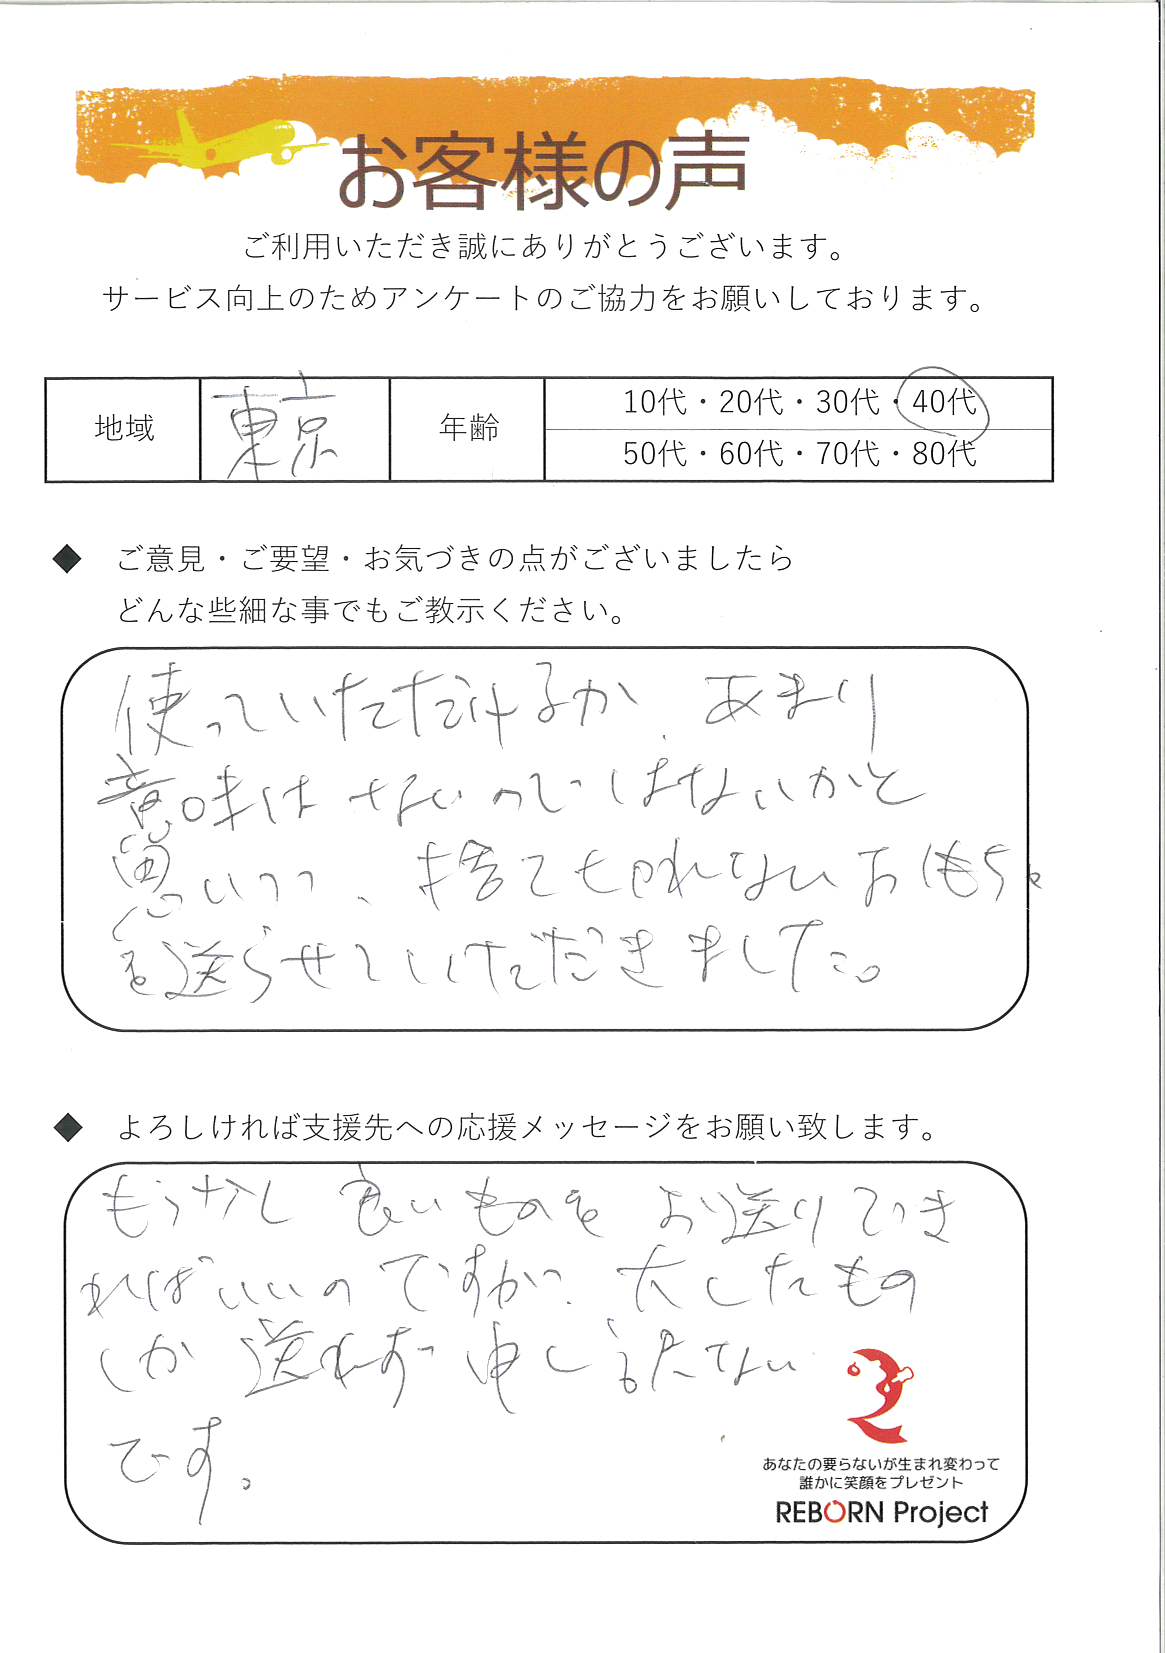 お客様の声
ご利用いただき誠にありがとうございます。
サービス向上のためアンケートのご協力をお願いしております。
地域 東京 年齢 10代・20代・30代・40代
50代・60代・70代・80代
◆ ご意見・ご要望・お気づきの点がございましたら
どんな些細な事でもご教示ください。
使っていただけるか、あまり
意味はないのではないかと
思いつつ、捨てられないおもちゃ
を送らせていただきました。
◆ よろしければ支援先への応援メッセージをお願い致します。
もう少し良いものをお送りでき
ればいいのですが、大したもの
しか送れず申し訳ない
です。
あなたの要らないが生まれ変わって
誰かに笑顔をプレゼント
REBORN Project